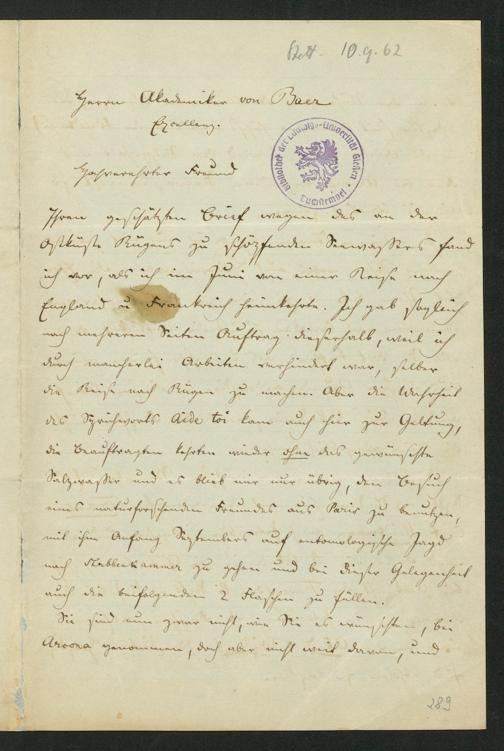 Stett. 10.9.62
Herrn Akademiker von Baer
Excellenz.
Bibliothek der Ludwigs-Universität Gießen
Tuchstempel
Hochverehrter Freund
Ihren geschätzten Brief wegen des an der
Ostküste Rügens zu schöpfenden Seewassers fand
ich vor, als ich im Juni von einer Reise nach
England u. Frankreich heimkehrte. Ich gab sogleich
nach mehreren Seiten Auftrag dieserhalb, weil ich
durch mancherlei Arbeiten verhindert war, selber
die Reise nach Rügen zu machen. Aber die Wahrheit
des Sprüchworts Aide toi kam auch hier zur Geltung,
die Beauftragten kehrten wieder ohne das gewünschte
Salzwasser und es blieb mir nur übrig, den Besuch
eines naturforschenden Freundes aus Paris zu benutzen,
mit ihm Anfang Septembers auf entomologische Jagd
nach Stubbenkammer zu gehen und bei dieser Gelegenheit
auch die beifolgenden 2 Flaschen zu füllen.
Sie sind nun zwar nicht, wie Sie es wünschten, bei
Arcona genommen, doch aber nicht weit davon, und
289